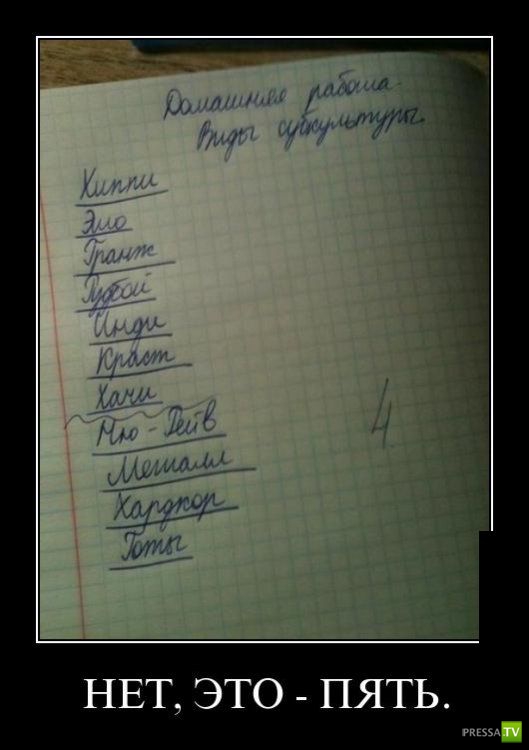 Домашняя работа.
Виды субкультуры.
Хиппи
Эмо
Гранж
Рудбой
Инди
Краст
Хачи
Ню-Рейв
Металл
Хардкор
Готы
4
НЕТ, ЭТО - ПЯТЬ.
PRESSA TV